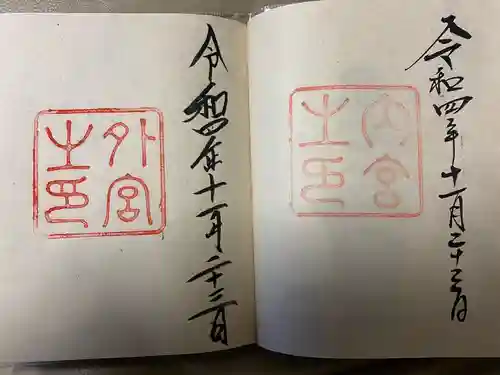 令和四年十一月二十三日
内宮
之印
令和四年十一月二十三日
外宮
之印